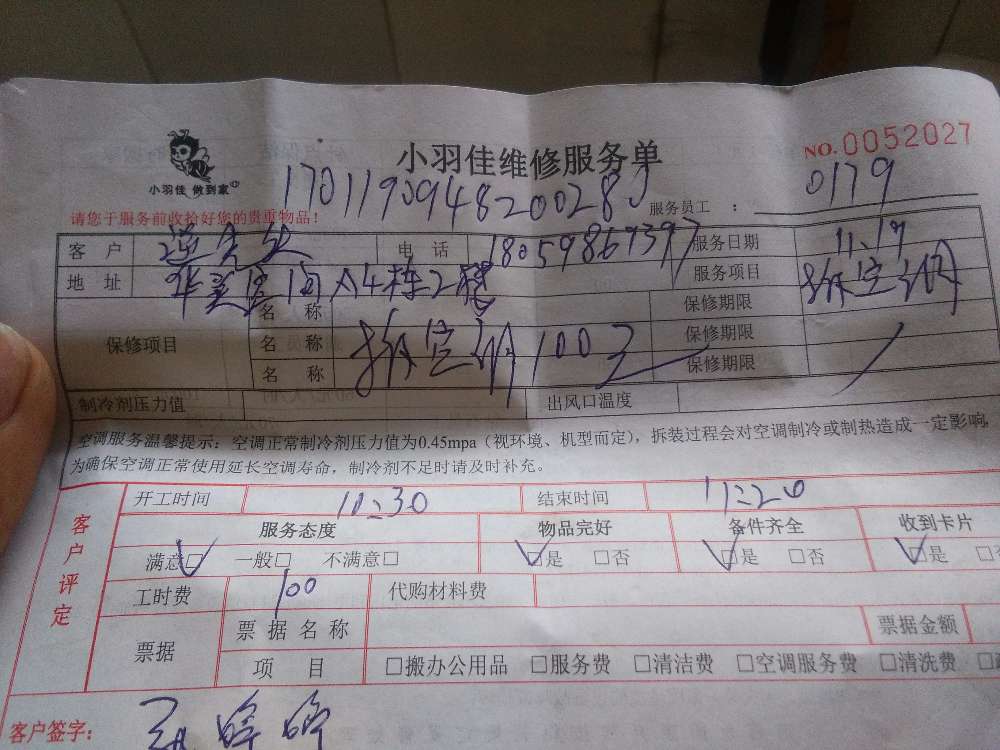 小羽佳维修服务单
NO.0052027
小羽佳 做到家
1701190948200280
服务员工 ： 0179
请您于服务前收拾好您的贵重物品！
客 户 电 话 18059867397 服务日期 11.17
地 址 A4栋2楼 服务项目 拆空调
保修项目 名 称 保修期限
名 称 拆空调100元 保修期限
名 称 保修期限
制冷剂压力值 出风口温度
空调服务温馨提示：空调正常制冷剂压力值为0.45mpa（视环境、机型而定），拆装过程会对空调制冷或制热造成一定影响，
为确保空调正常使用延长空调寿命，制冷剂不足时请及时补充。
客户评定
开工时间 10:30 结束时间 11:20
服务态度 物品完好 备件齐全 收到卡片
满意☑ 一般□ 不满意□ ☑是 □否 ☑是 □否 ☑是
工时费 100 代购材料费
票据 票 据 名 称 票据金额
项 目 □搬办公用品 □服务费 □清洁费 □空调服务费 □清洗费
客户签字：